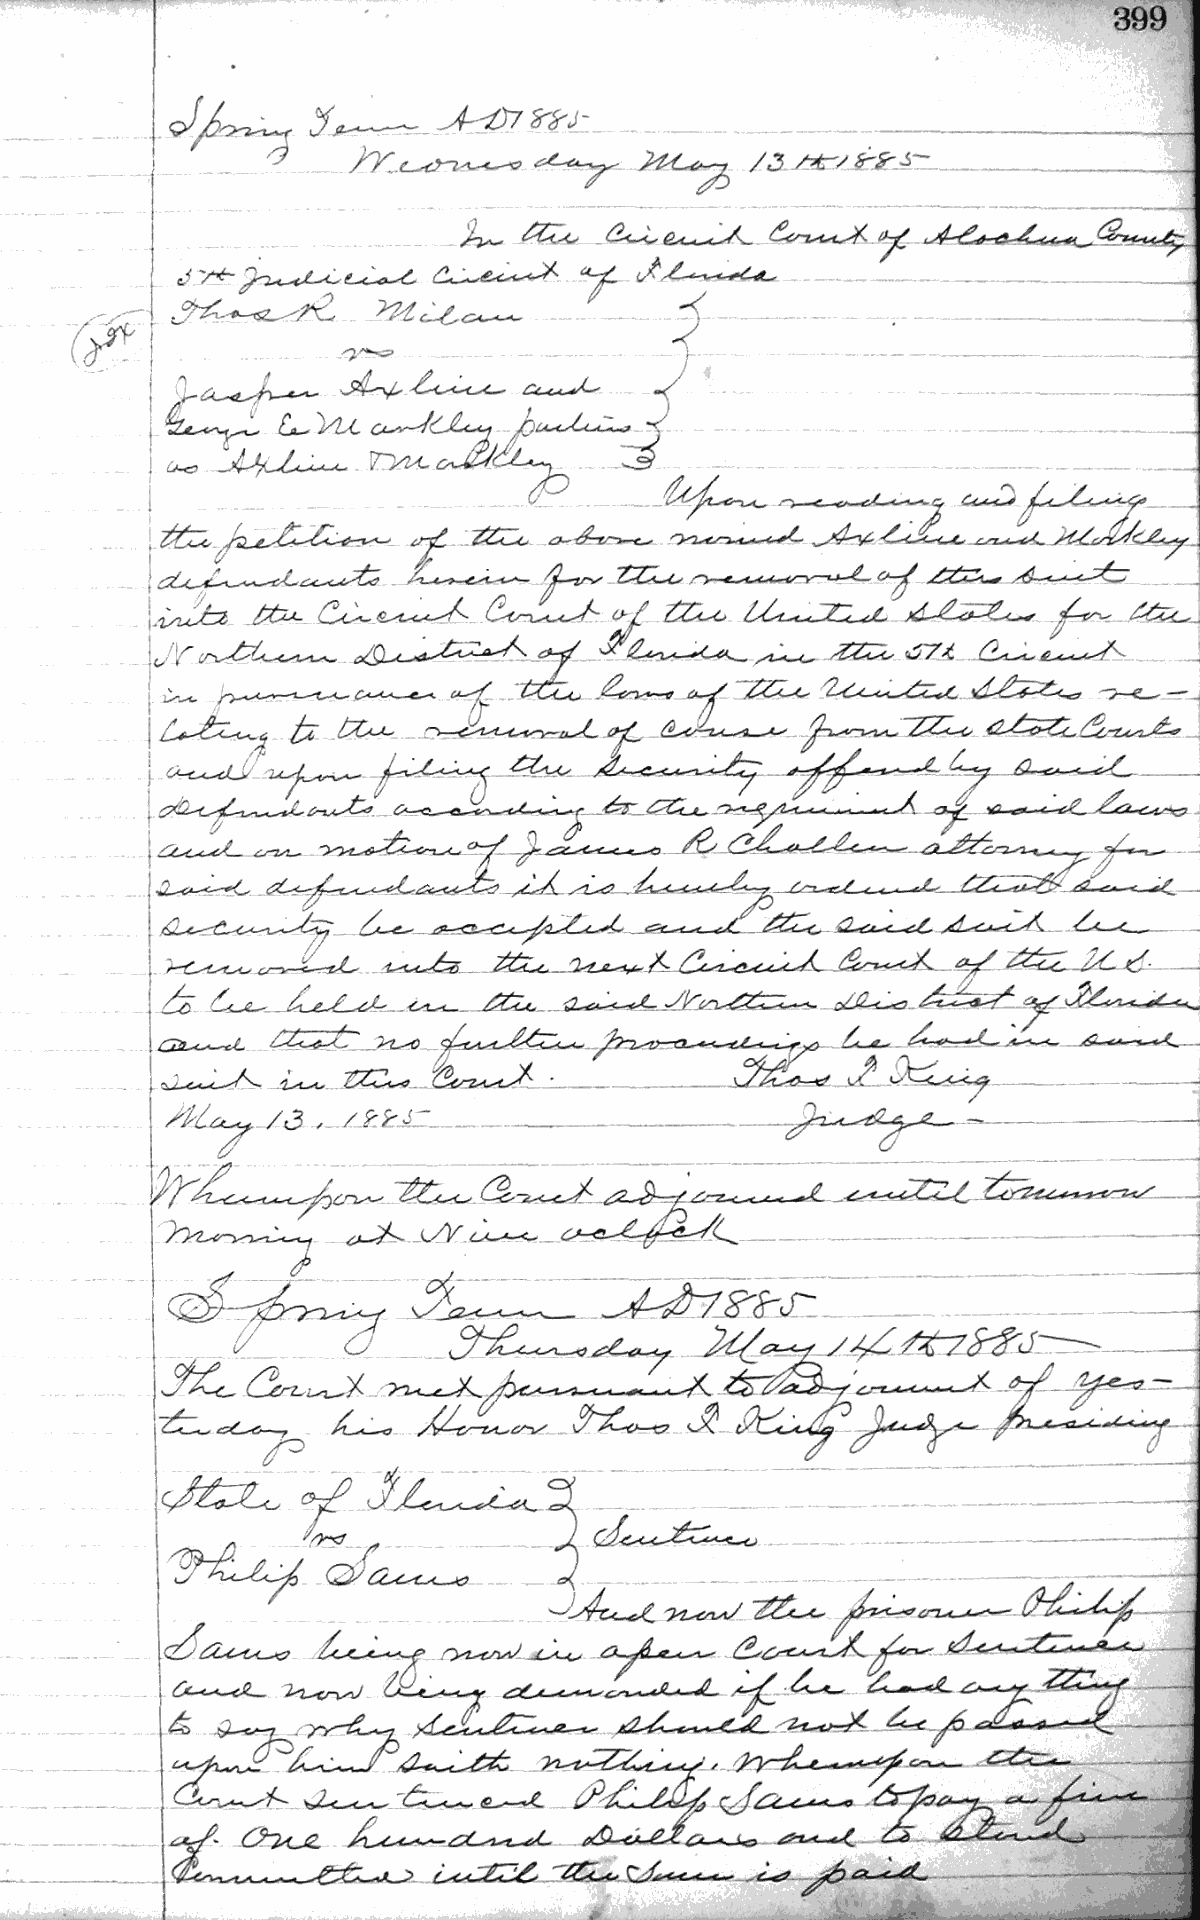 399
Spring Term AD1885
Wednesday May 13th 1885
In the Circuit Court of Alachua County
5th Judicial Circuit of Florida
Thos R Milan
vs
Jasper Axline and
George E Markley partners
as Axline & Markley
Upon reading and filing
the petition of the above named Axline and Markley
defendants herein for the removal of this suit
into the Circuit Court of the United States for the
Northern District of Florida in the 5th Circuit
in pursuance of the laws of the United States re-
lating to the removal of cause from the State Courts
and upon filing the security offered by said
defendants according to the requirment of said laws
and on motion of James R Challen attorney for
said defendants it is hereby ordered that said
security be accepted and the said suit be
removed into the next Circuit Court of the U S.
to be held in the said Northern District of Florida
and that no further proceedings be had in said
suit in this Court. Thos F King
May 13, 1885 Judge-
Whereupon the Court adjourned until tomorrow
Morning at Nine oclock
Spring Term AD1885
Thursday May 14th 1885
The Court met pursuant to adjournment of yes-
terday his Honor Thos F King Judge Presiding
State of Florida
vs Sentence
Philip Sams
And now the prisoner Philip
Sams being now in open Court for Sentence
and now being demanded if he had any thing
to say why Sentence should not be passed
upon him saith nothing. Whereupon the
Court sentenced Philip Sams to pay a fine
of One hundred Dollars and to stand
Committed until the same is paid